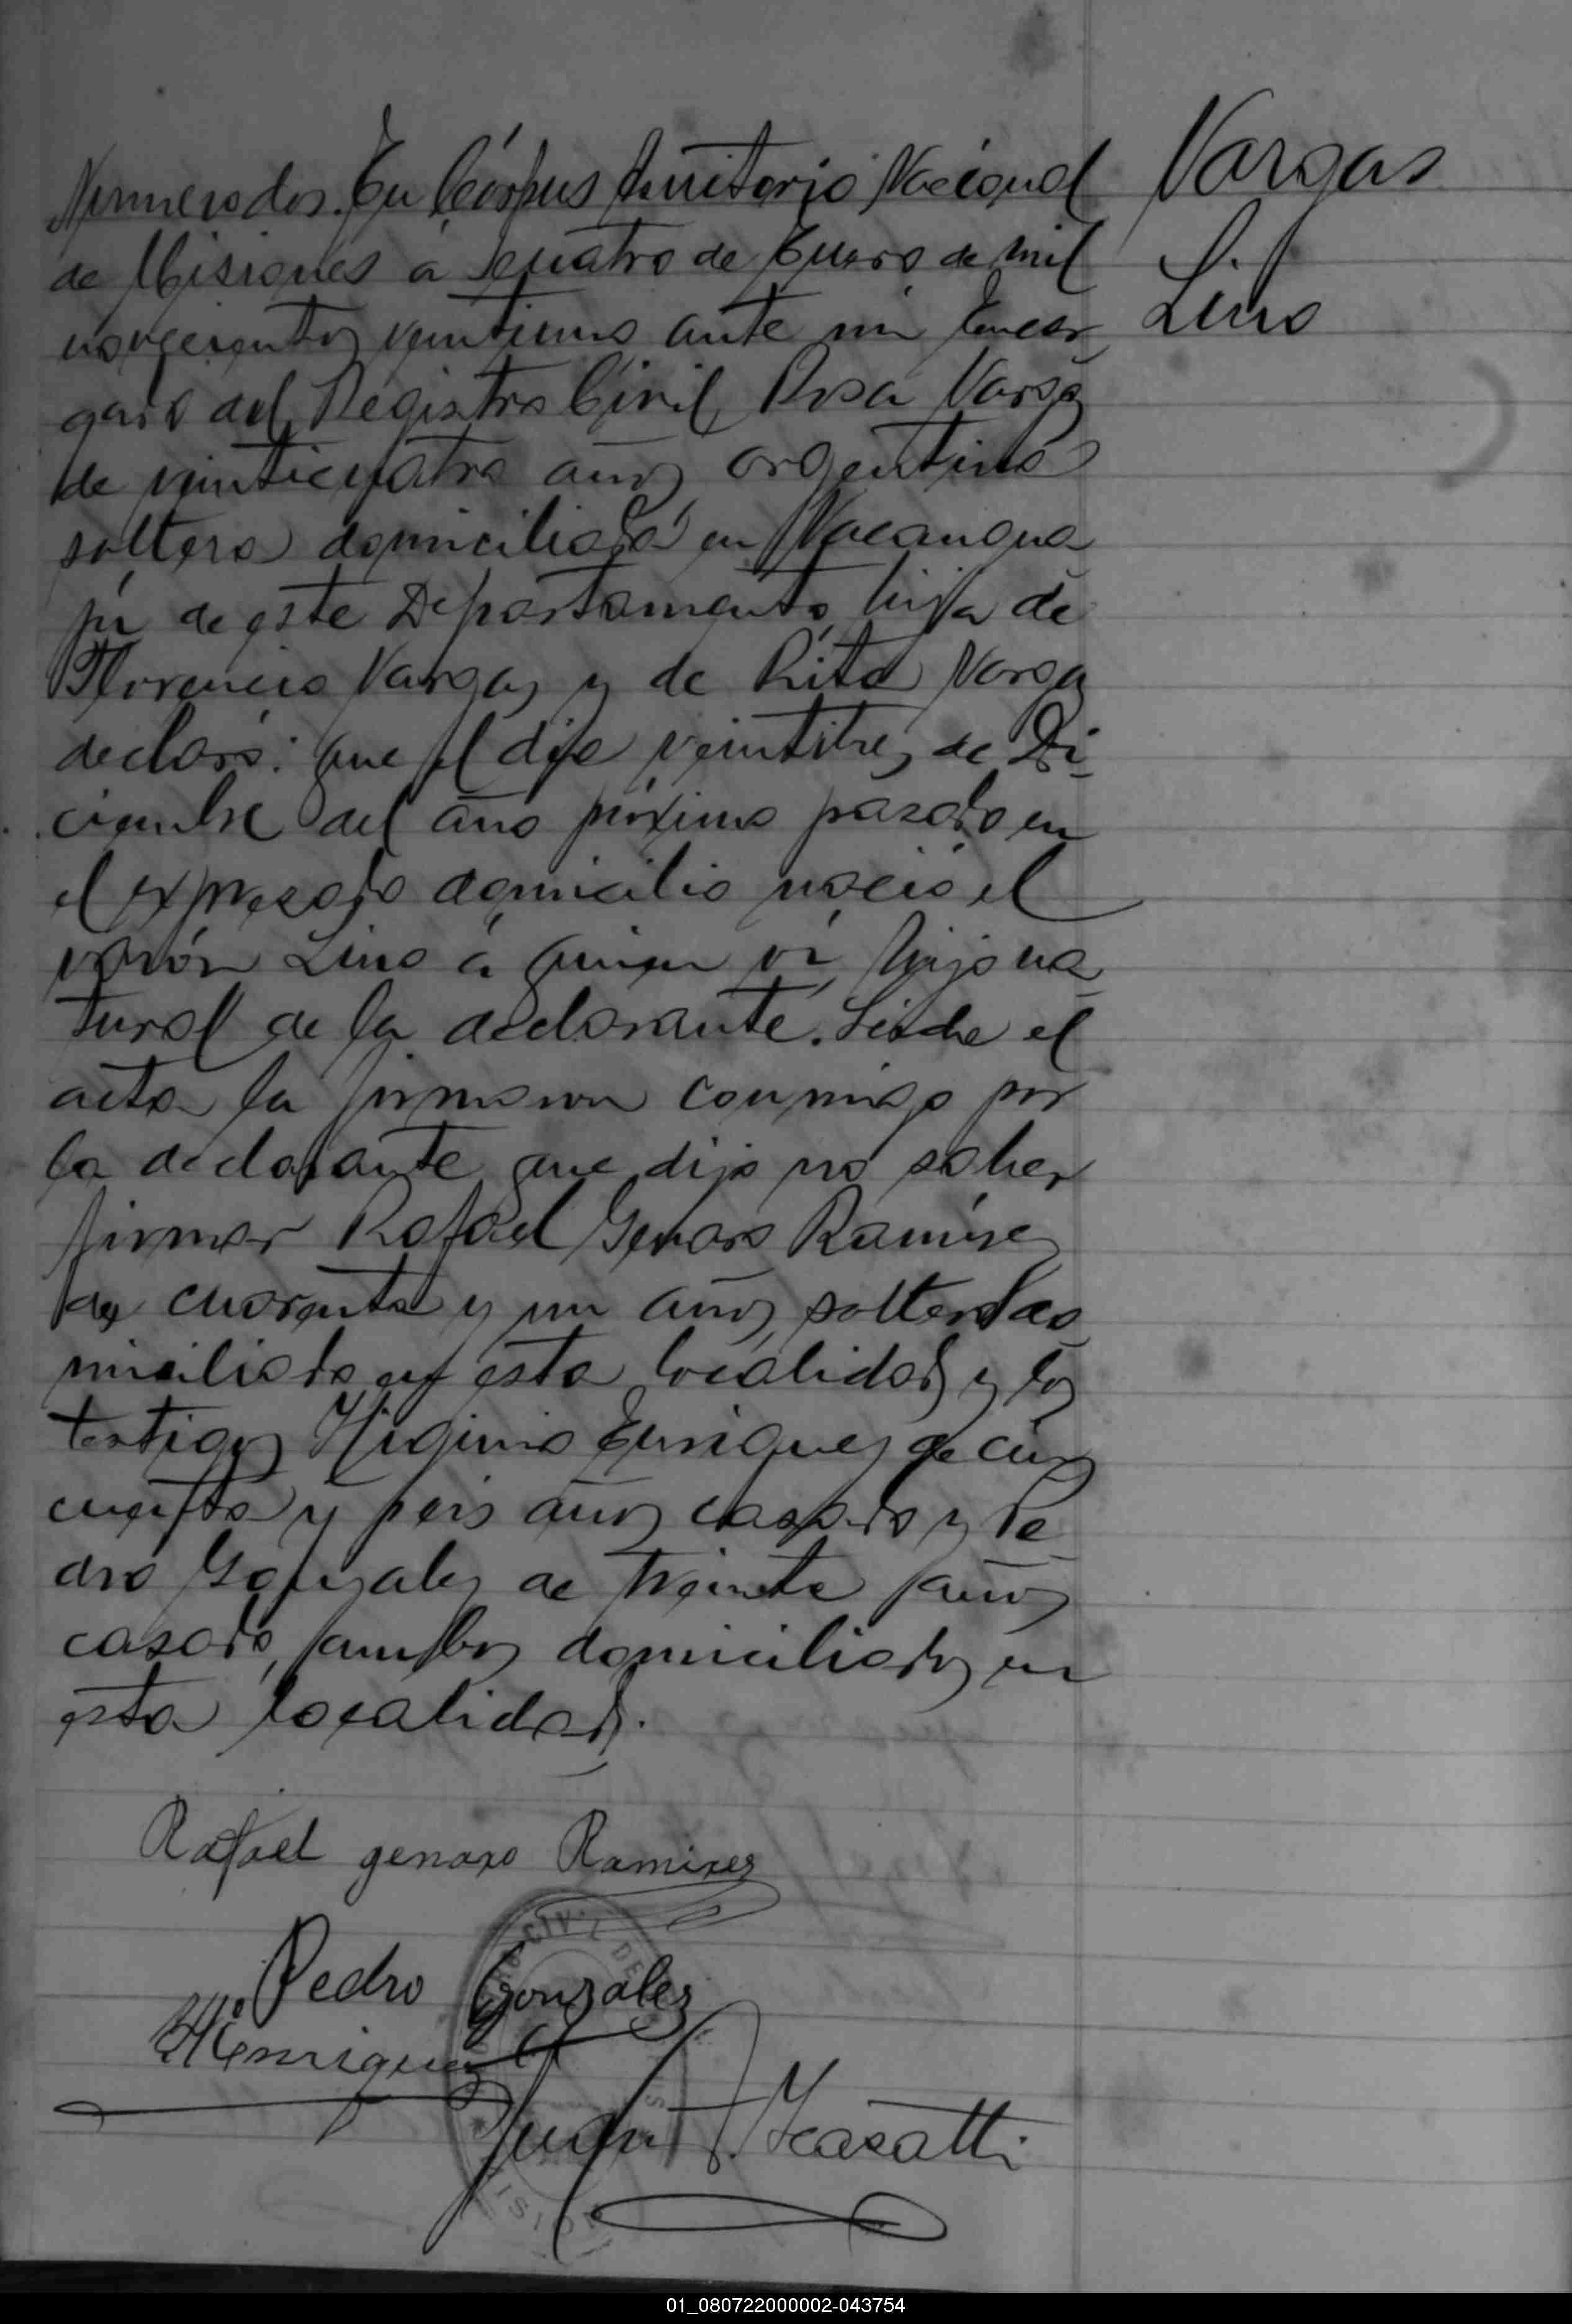 Numero dos. En Córpus Territorio Nacional
de Misiones á cuatro de Enero de mil
novecientos veintiuno ante mi Encar
gado del Registro Civil, Rosa Vargas
de veinticuatro años argentina
soltera domiciliada en Ñacangua
zú de este Departamento, hija de
Florencio Vargas y de Rita Vargas
declaró: que el dia veintitres de Di
ciembre del año próximo pasado en
el expresado domicilio nació el
varón Lino á quien vi, hijo na
tural de la declarante. Leida el
acta la firmaron conmigo por
la declarante que dijo no saber
firmar Rafael Genaro Ramires
de cuarenta y un años, soltero do
miciliado en esta localidad y los
testigos Higinio Enriquez de cin
cuenta y seis años casado y Pe
dro Gonzalez de treinta años
casado, ambos domiciliados en
esta localidad.
Vargas
Lino
Rafael genaro Ramires
Pedro Gonzalez
HEnriquez
Juan F. Casatti
CIVIL DE
01_080722000002-043754